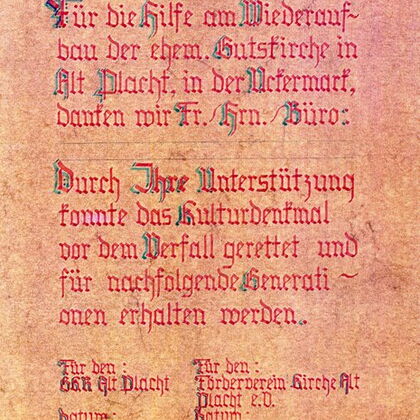 Für die Hilfe am Wiederauf-
bau der ehem. Gutskirche in
Alt Placht, in der Uckermark,
danken wir Fr./Hrn./Büro:
Durch Ihre Unterstützung
konnte das Kulturdenkmal
vor dem Verfall gerettet und
für nachfolgende Generati~
onen erhalten werden.
Für den: Für den:
GKR Alt Placht Förderverein Kirche Alt
Placht e.V.
Datum: Datum: